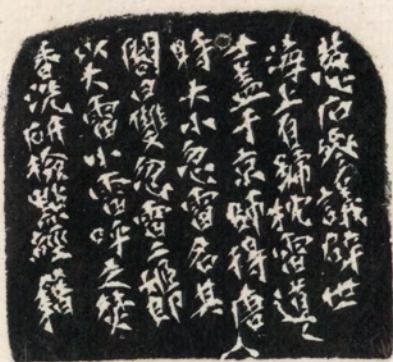 蔥石參議辟世
海上自號枕雷道
士蓋于京師得唐
時大小忽雷名其
閣曰雙忽雷二姬即
以大雷小雷呼之焚
香洗研檢點經籍